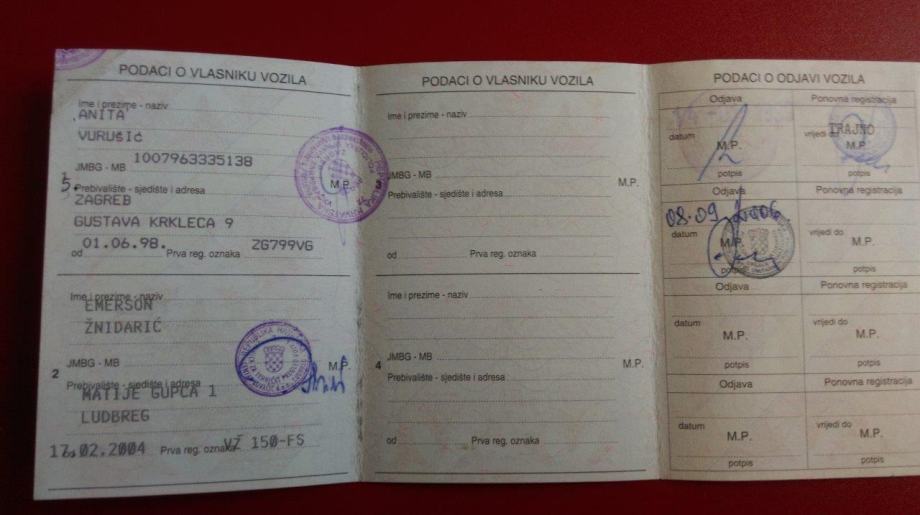 PODACI O VLASNIKU VOZILA
Ime i prezime - naziv
ANITA
VURUŠIĆ
JMBG - MB 1007963335138
M.P.
Prebivalište - sjedište i adresa
ZAGREB
GUSTAVA KRKLECA 9
od 01.06.98. Prva reg. oznaka ZG799VG
Ime i prezime - naziv
EMERSON
ŽNIDARIĆ
JMBG - MB
2
M.P.
Prebivalište - sjedište i adresa
MATIJE GUPCA 1
LUDBREG
17.02.2004 Prva reg. oznaka VŽ 150-FS
PODACI O VLASNIKU VOZILA
Ime i prezime - naziv
JMBG - MB
M.P.
Prebivalište - sjedište i adresa
od Prva reg. oznaka
Ime i prezime - naziv
JMBG - MB
4
M.P.
Prebivalište - sjedište i adresa
od Prva reg. oznaka
PODACI O ODJAVI VOZILA
Odjava Ponovna registracija
datum vrijedi do TRAJNO
M.P. M.P.
potpis potpis
Odjava Ponovna registracija
08.09
datum vrijedi do
M.P. M.P.
potpis potpis
Odjava Ponovna registracija
datum vrijedi do
M.P. M.P.
potpis potpis
Odjava Ponovna registracija
datum vrijedi do
M.P. M.P.
potpis potpis